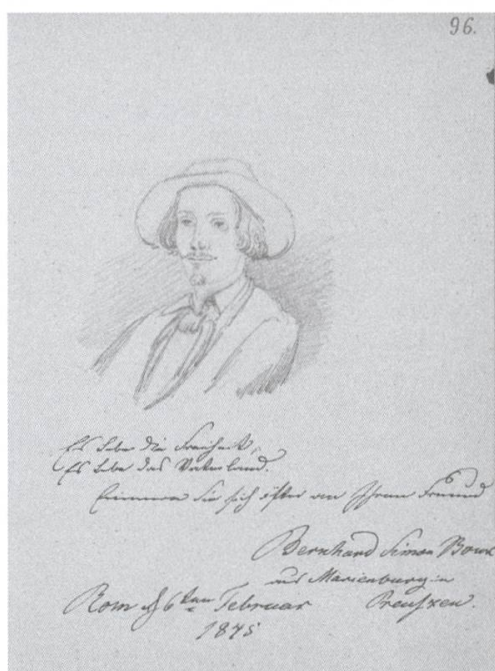 96.
Es lebe die Freiheit,
Es lebe das Vaterland.
Erinnern Sie sich öfter an Ihren Freund
Bernhard Simon
aus Marienburg in
Rom d 6ten Februar Preußen.
1845